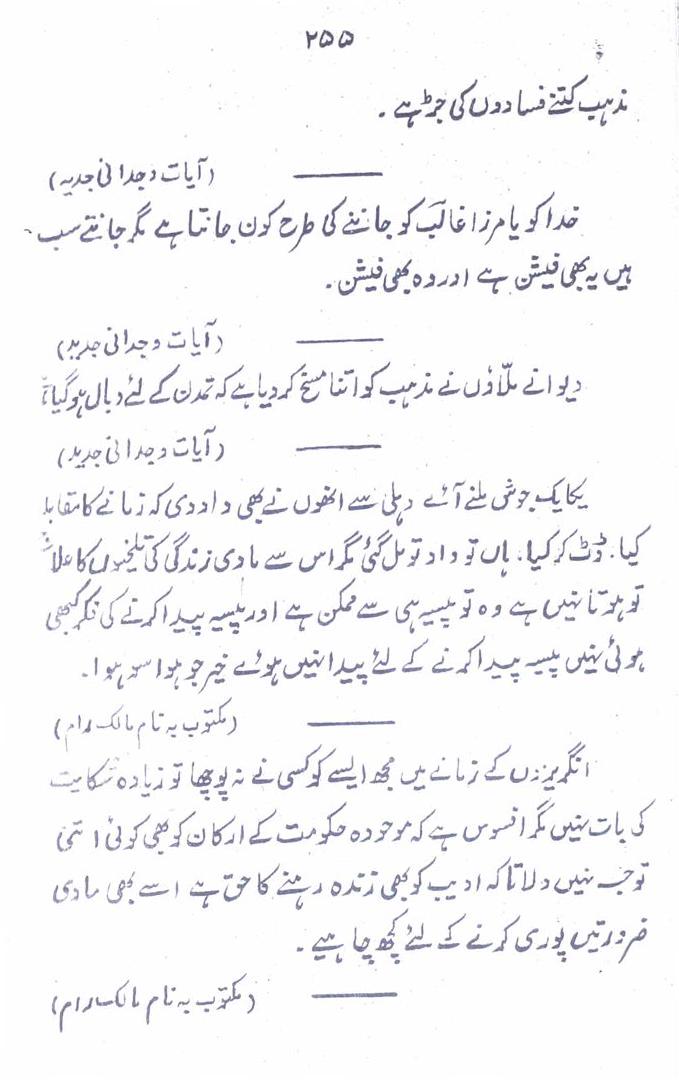 ۲۵۵
مذہب کتنے فسادوں کی جڑ ہے ۔
(آیات وجدانی جدید)
خدا کو یا مرزا غالبؔ کو جاننے کی طرح کون جانتا ہے مگر جانتے سب
ہیں یہ بھی فیشن ہے اور وہ بھی فیشن ۔
(آیات وجدانی جدید)
دیوانے ملّاؤں نے مذہب کو اتنا مسخ کر دیا ہے کہ تمدن کے لئے وبال ہو گیا
(آیات وجدانی جدید)
یکایک جوش ملنے آئے دہلی سے انھوں نے بھی داد دی کہ زمانے کا مقابلہ
کیا، ڈٹ کر کیا، ہاں تو داد تو مل گئی مگر اس سے مادی زندگی کی تلخیوں کا علاج
تو ہوتا نہیں ہے وہ تو پیسہ ہی سے ممکن ہے اور پیسہ پیدا کرنے کی فکر کبھی
ہوئی نہیں پیسہ پیدا کرنے کے لئے پیدا نہیں ہوئے خیر جو ہوا سو ہوا ۔
(مکتوب بہ نام مالک رام)
انگریزوں کے زمانے میں مجھ ایسے کو کسی نے نہ پوچھا تو زیادہ شکایت
کی بات نہیں مگر افسوس ہے کہ موجودہ حکومت کے ارکان کو بھی کوئی اتنی
توجہ نہیں دلاتا کہ ادیب کو بھی زندہ رہنے کا حق ہے اسے بھی مادی
ضرورتیں پوری کرنے کے لئے کچھ چاہیے ۔
(مکتوب بہ نام مالک رام)